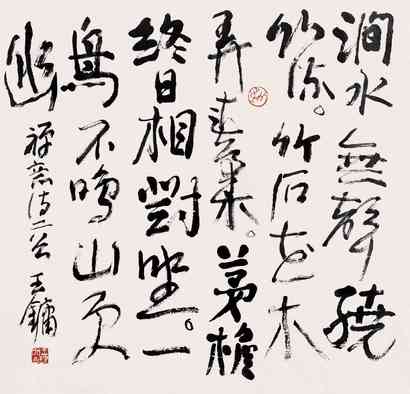 澗水無聲繞
竹流。竹石花木
弄春柔。茅檐
終日相對坐。一
鳥不鳴山更
幽
禪意詩 王鏞